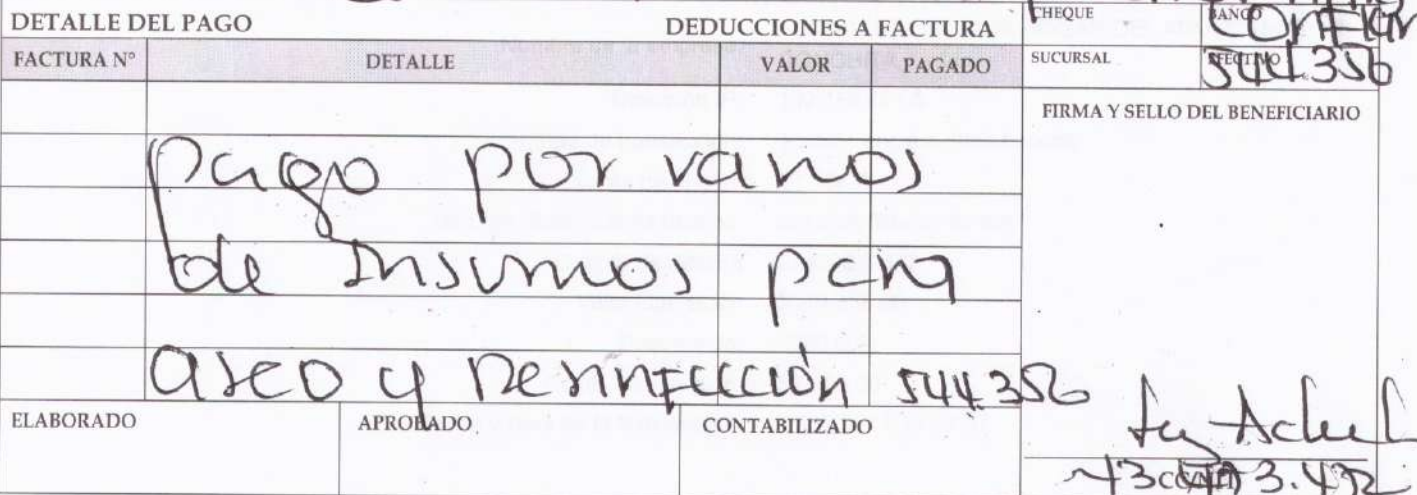 DETALLE DEL PAGO DEDUCCIONES A FACTURA CHEQUE BANCO
FACTURA N° DETALLE VALOR PAGADO SUCURSAL EFECTIVO
544.356
FIRMA Y SELLO DEL BENEFICIARIO
Pago por varios
de Insumos para
aseo y Desinfección 544.356
ELABORADO APROBADO CONTABILIZADO